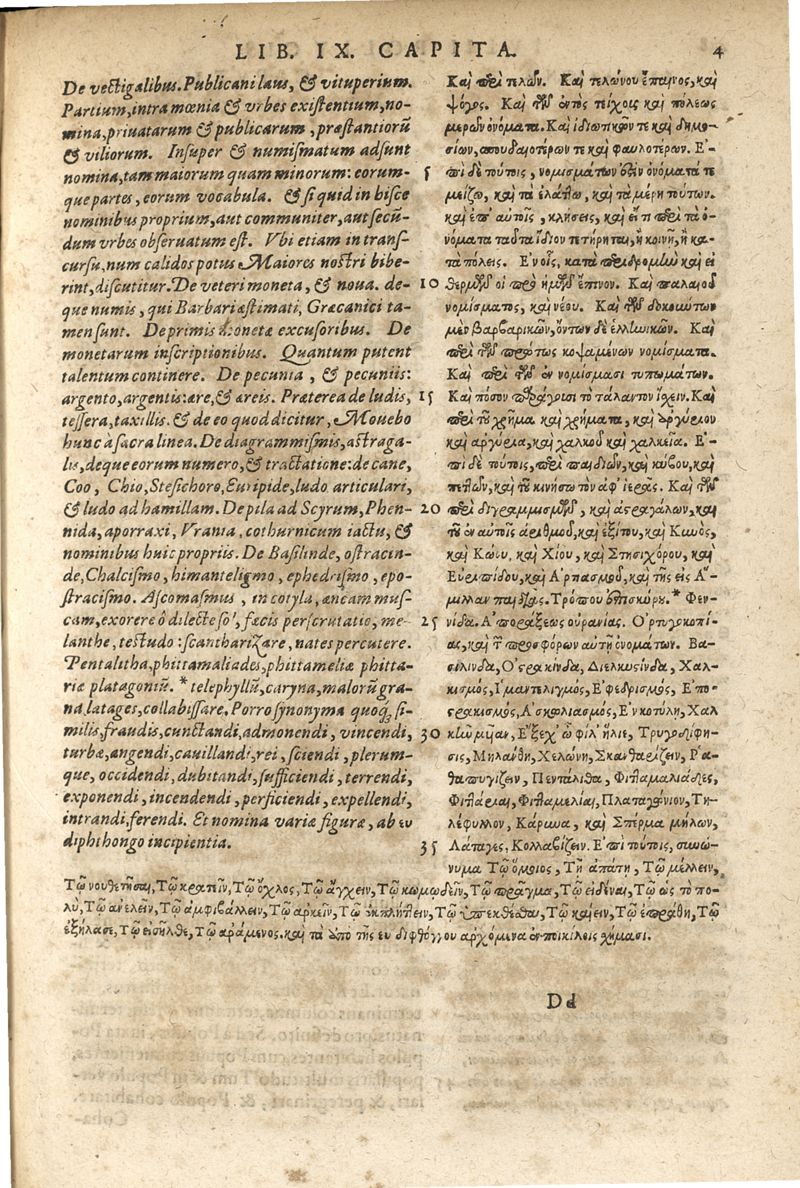 LIB. IX. CAPITA.
4
De vectigalibus. Publicani laus, & vituperium.
Partium, intra mœnia & vrbes existentium, no-
mina, priuatarum & publicarum, præstantiorũ
& viliorum. Insuper & numismatum adsunt
nomina, tam maiorum quam minorum: eorum-
que partes, eorum vocabula. & si quid in bisce
nominibus proprium, aut communiter, aut secũ-
dum vrbes obseruatum est. Vbi etiam in trans-
cursu, num calidos potus Maiores nostri bibe-
rint, discutitur. De veteri moneta, & noua. de-
que numis, qui Barbari æstimati, Græcanici ta-
men sunt. De primis monetæ excusoribus. De
monetarum inscriptionibus. Quantum putent
talentum continere. De pecunia, & pecuniis:
argento, argentis: ære, & æreis. Præterea de ludis,
tessera, taxillis. & de eo quod dicitur, Mouebo
hunc à sacra linea. De diagrammismis, astraga-
lis, deque eorum numero, & tractatione: de cane,
Coo, Chio, Stesichoro, Euripide, ludo articulari,
& ludo ad hamillam. De pila ad Scyrum, Phen-
nida, aporraxi, Vrania, cothurnicum iactu, &
nominibus huic propriis. De Basilinde, ostracin-
de, Chalcismo, himanteligmo, ephedrismo, epo-
stracismo. Ascomasmus, in cotyla, æneam mus-
cam, exorere ô dilecte sol, fæcis perscrutatio, me-
lanthe, testudo: scantharizare, nates percutere.
Pentalitha, phittamaliades, phittameliæ phitta-
riæ platagoniũ. * telephyllũ, caryna, malorũ gra-
na, latages, collabissare. Porro synonyma quoq; si-
milis, fraudis, cunctandi, admonendi, vincendi,
turbæ, angendi, cauillandi, rei, sciendi, plerum-
que, occidendi, dubitandi, sufficiendi, terrendi,
exponendi, incendendi, perficiendi, expellendi,
intrandi, ferendi. Et nomina variæ figuræ, ab ευ
diphthongo incipientia.
Καὶ περὶ τελῶν. Καὶ τελώνου ἔπαινος, καὶ
ψόγος. Καὶ τῶν ἐντὸς τείχοις καὶ πόλεως
μερῶν ὀνόματα. Καὶ ἰδιωτικῶν τε καὶ δημο-
σίων, σπουδαιοτέρων τε καὶ φαυλοτέρων. Ε᾿-
5 πὶ δὲ τούτοις, νομισμάτων ὀνόματά τε
μείζω, καὶ τὰ ἐλάττω, καὶ τὰ μέρη τούτων.
καὶ ἐπ᾿ αὐτοῖς, κλήσεις, καὶ εἴ τι περὶ τὰ ὀ-
νόματα ταῦτα ἴδιον τετήρηται, ἢ κοινῇ, ἢ κα-
τὰ πόλεις. Ε᾿ν οἷς, κατὰ περιδρομὴν καὶ εἰ
10 θερμῶν οἱ πρὸ ἡμῶν ἔπινον. Καὶ παλαιοῦ
νομίσματος, καὶ νέου. Καὶ τῶν δοκούντων
μὲν βαρβαρικῶν, ὄντων δὲ ἑλληνικῶν. Καὶ
περὶ τῶν πρώτως κοψαμένων νομίσματα.
Καὶ περὶ τῶν ἐν νομίσμασι τυπωμάτων.
15 Καὶ πόσον φράζουσι τὸ τάλαντον ἴσχειν. Καὶ
περὶ τοῦ χρῆμα καὶ χρήματα, καὶ ἀργύριον
καὶ ἀργύρια, καὶ χαλκοῦ καὶ χαλκεῖα. Ε᾿-
πὶ δὲ τούτοις, περὶ παιδιῶν, καὶ κύβου, καὶ
πεττῶν, καὶ τοῦ κινήσω τὸν ἀφ᾿ ἱερᾶς. Καὶ τῶν
20 περὶ διγραμμισμῶν, καὶ ἀστραγάλων, καὶ
τοῦ ἐν αὐτοῖς ἀριθμοῦ, καὶ ἑξίτου, καὶ Κυνὸς,
καὶ Κώου, καὶ Χίου, καὶ Στησιχόρου, καὶ
Εὐριπίδου, καὶ Α῾ρπασμοῦ, καὶ τῆς εἰς Α῞-
μιλλαν παιδιᾶς. Τρόπου ἐπισκύρου. * Φεν-
25 νίδα. Α᾿ποράξεως οὐρανίας. Ο᾿ρτυγοκοπί-
ας, καὶ τῶν προσφόρων αὐτῇ ὀνομάτων. Βα-
σιλίνδα, Ο᾿στρακίνδα, Διελκυστίνδα, Χαλ-
κισμὸς, Ι῾μαντελιγμὸς, Ε᾿φεδρισμὸς, Ε᾿πο-
στρακισμὸς, Α᾿σκωλιασμὸς, Ε᾿νκοτύλη, Χαλ
30 κῆν μυῖαν, Ε῎ξεχ᾿ ὦ φίλ᾿ ἥλιε, Τρυγοδίφη-
σις, Μηλάνθη, Χελώνη, Σκανθαρίζειν, Ρ῾α-
θαπυγίζειν, Πεντάλιθα, Φιτταμαλιάδες,
Φιττάριαι, Φιτταμελίαι, Πλαταγώνιον, Τη-
λέφυλλον, Κάρυνα, καὶ Σπέρμα μήλων,
35 Λάταγες, Κολλαβίζειν. Ε᾿πὶ τούτοις, συνώ-
νυμα Τῷ ὅμοιος, Τῇ ἀπάτῃ, Τῷ μέλλειν,
Τῷ νουθετῆσαι, Τῷ κρατεῖν, Τῷ ὄχλος, Τῷ ἄγχειν, Τῷ κωμῳδεῖν, Τῷ πρᾶγμα, Τῷ εἰδέναι, Τῷ ὡς τὸ πο-
λύ, Τῷ ἀνελεῖν, Τῷ ἀμφιβάλλειν, Τῷ ἀρκεῖν, Τῷ ἐκπλήττειν, Τῷ ὑπεκθεῖναι, Τῷ καίειν, Τῷ ἐπράθη, Τῷ
ἐξήλασε, Τῷ εἰσῆλθε, Τῷ ἀράμενος. καὶ τὰ ἀπὸ τῆς ευ διφθόγγου ἀρχόμενα ἐν ποικίλοις χήμασι.
Dd